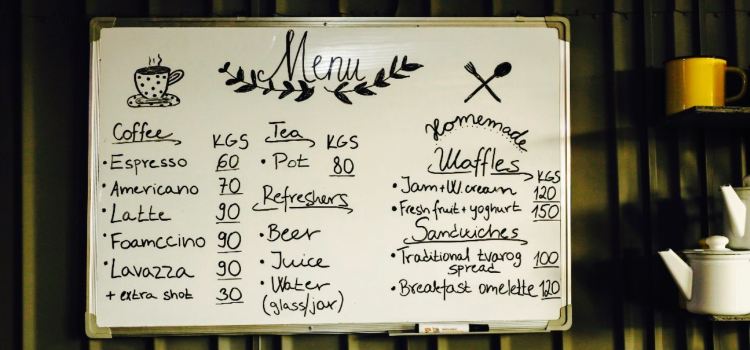 Menu
Coffee KGS
• Espresso 60
• Americano 70
• Latte 90
• Foamccino 90
• Lavazza 90
+ extra shot 30
Tea KGS
• Pot 80
Refreshers
• Beer
• Juice
• Water
(glass/jar)
Homemade
Waffles KGS
• Jam + W. cream 120
• Fresh fruit + yoghurt 150
Sandwiches
• Traditional tvarog 100
spread
• Breakfast omelette 120